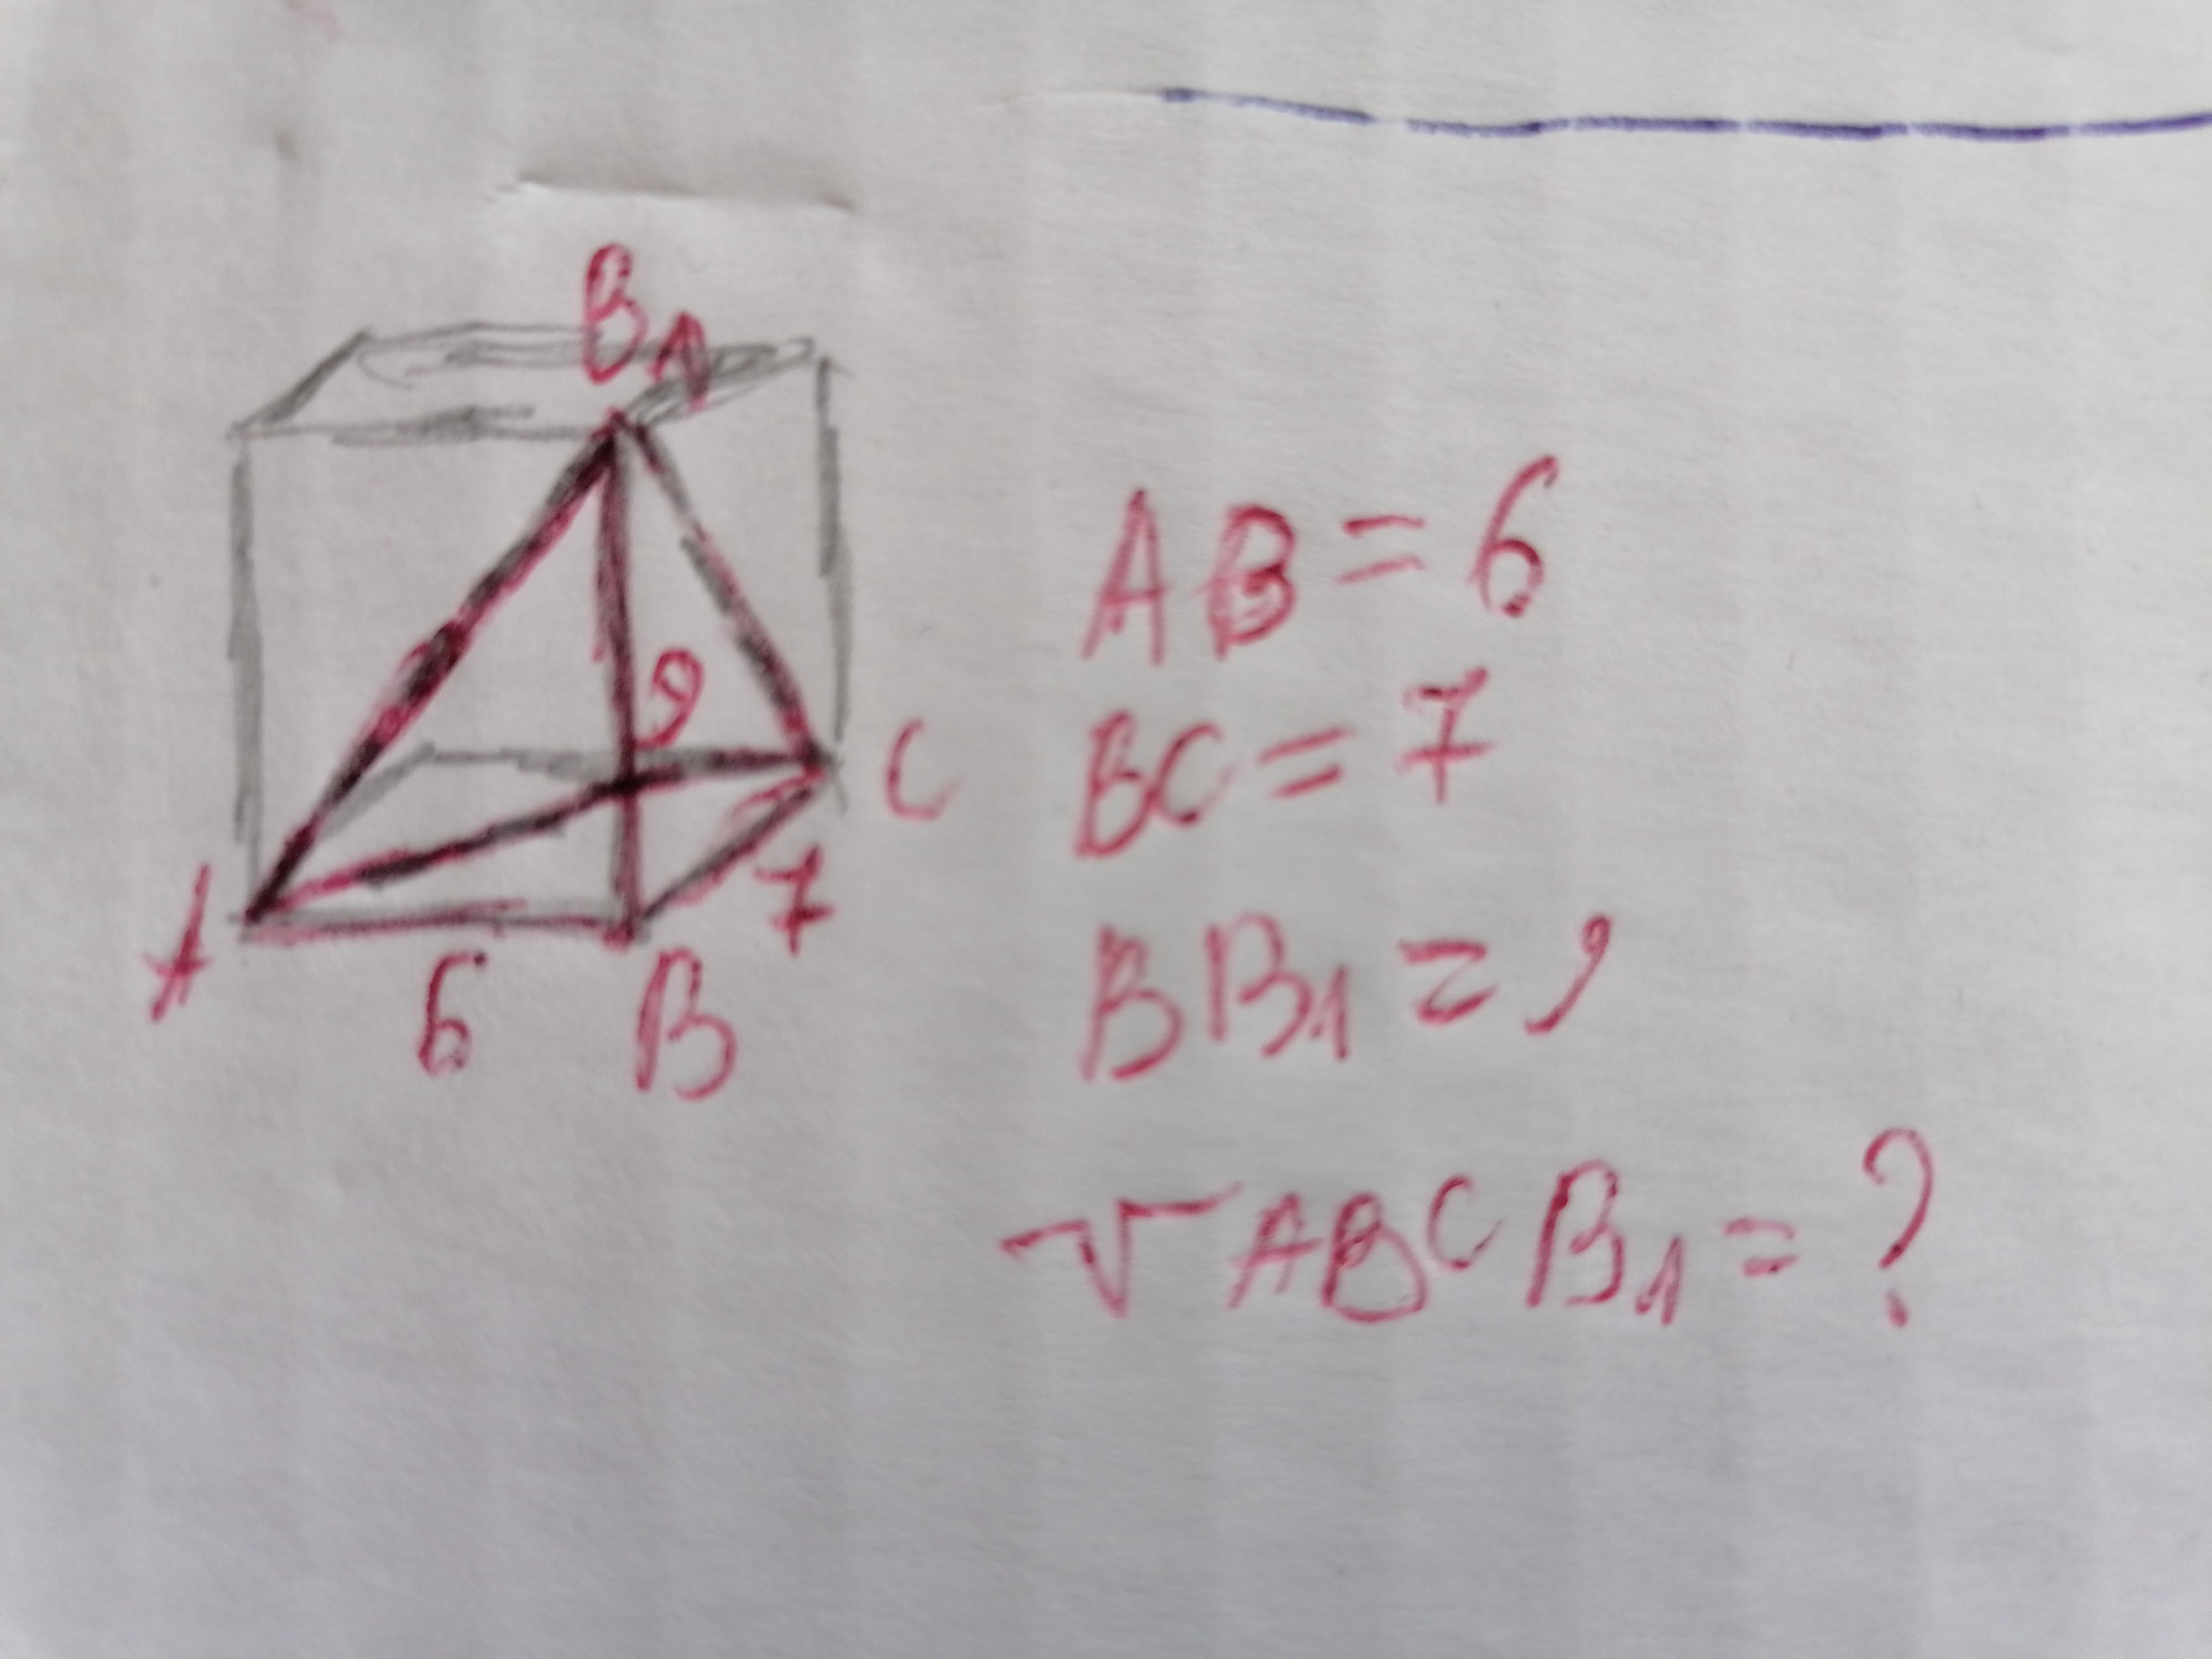 B1
9
C
A
7
6
B
AB = 6
BC = 7
BB1 = 9
VABCB1 = ?